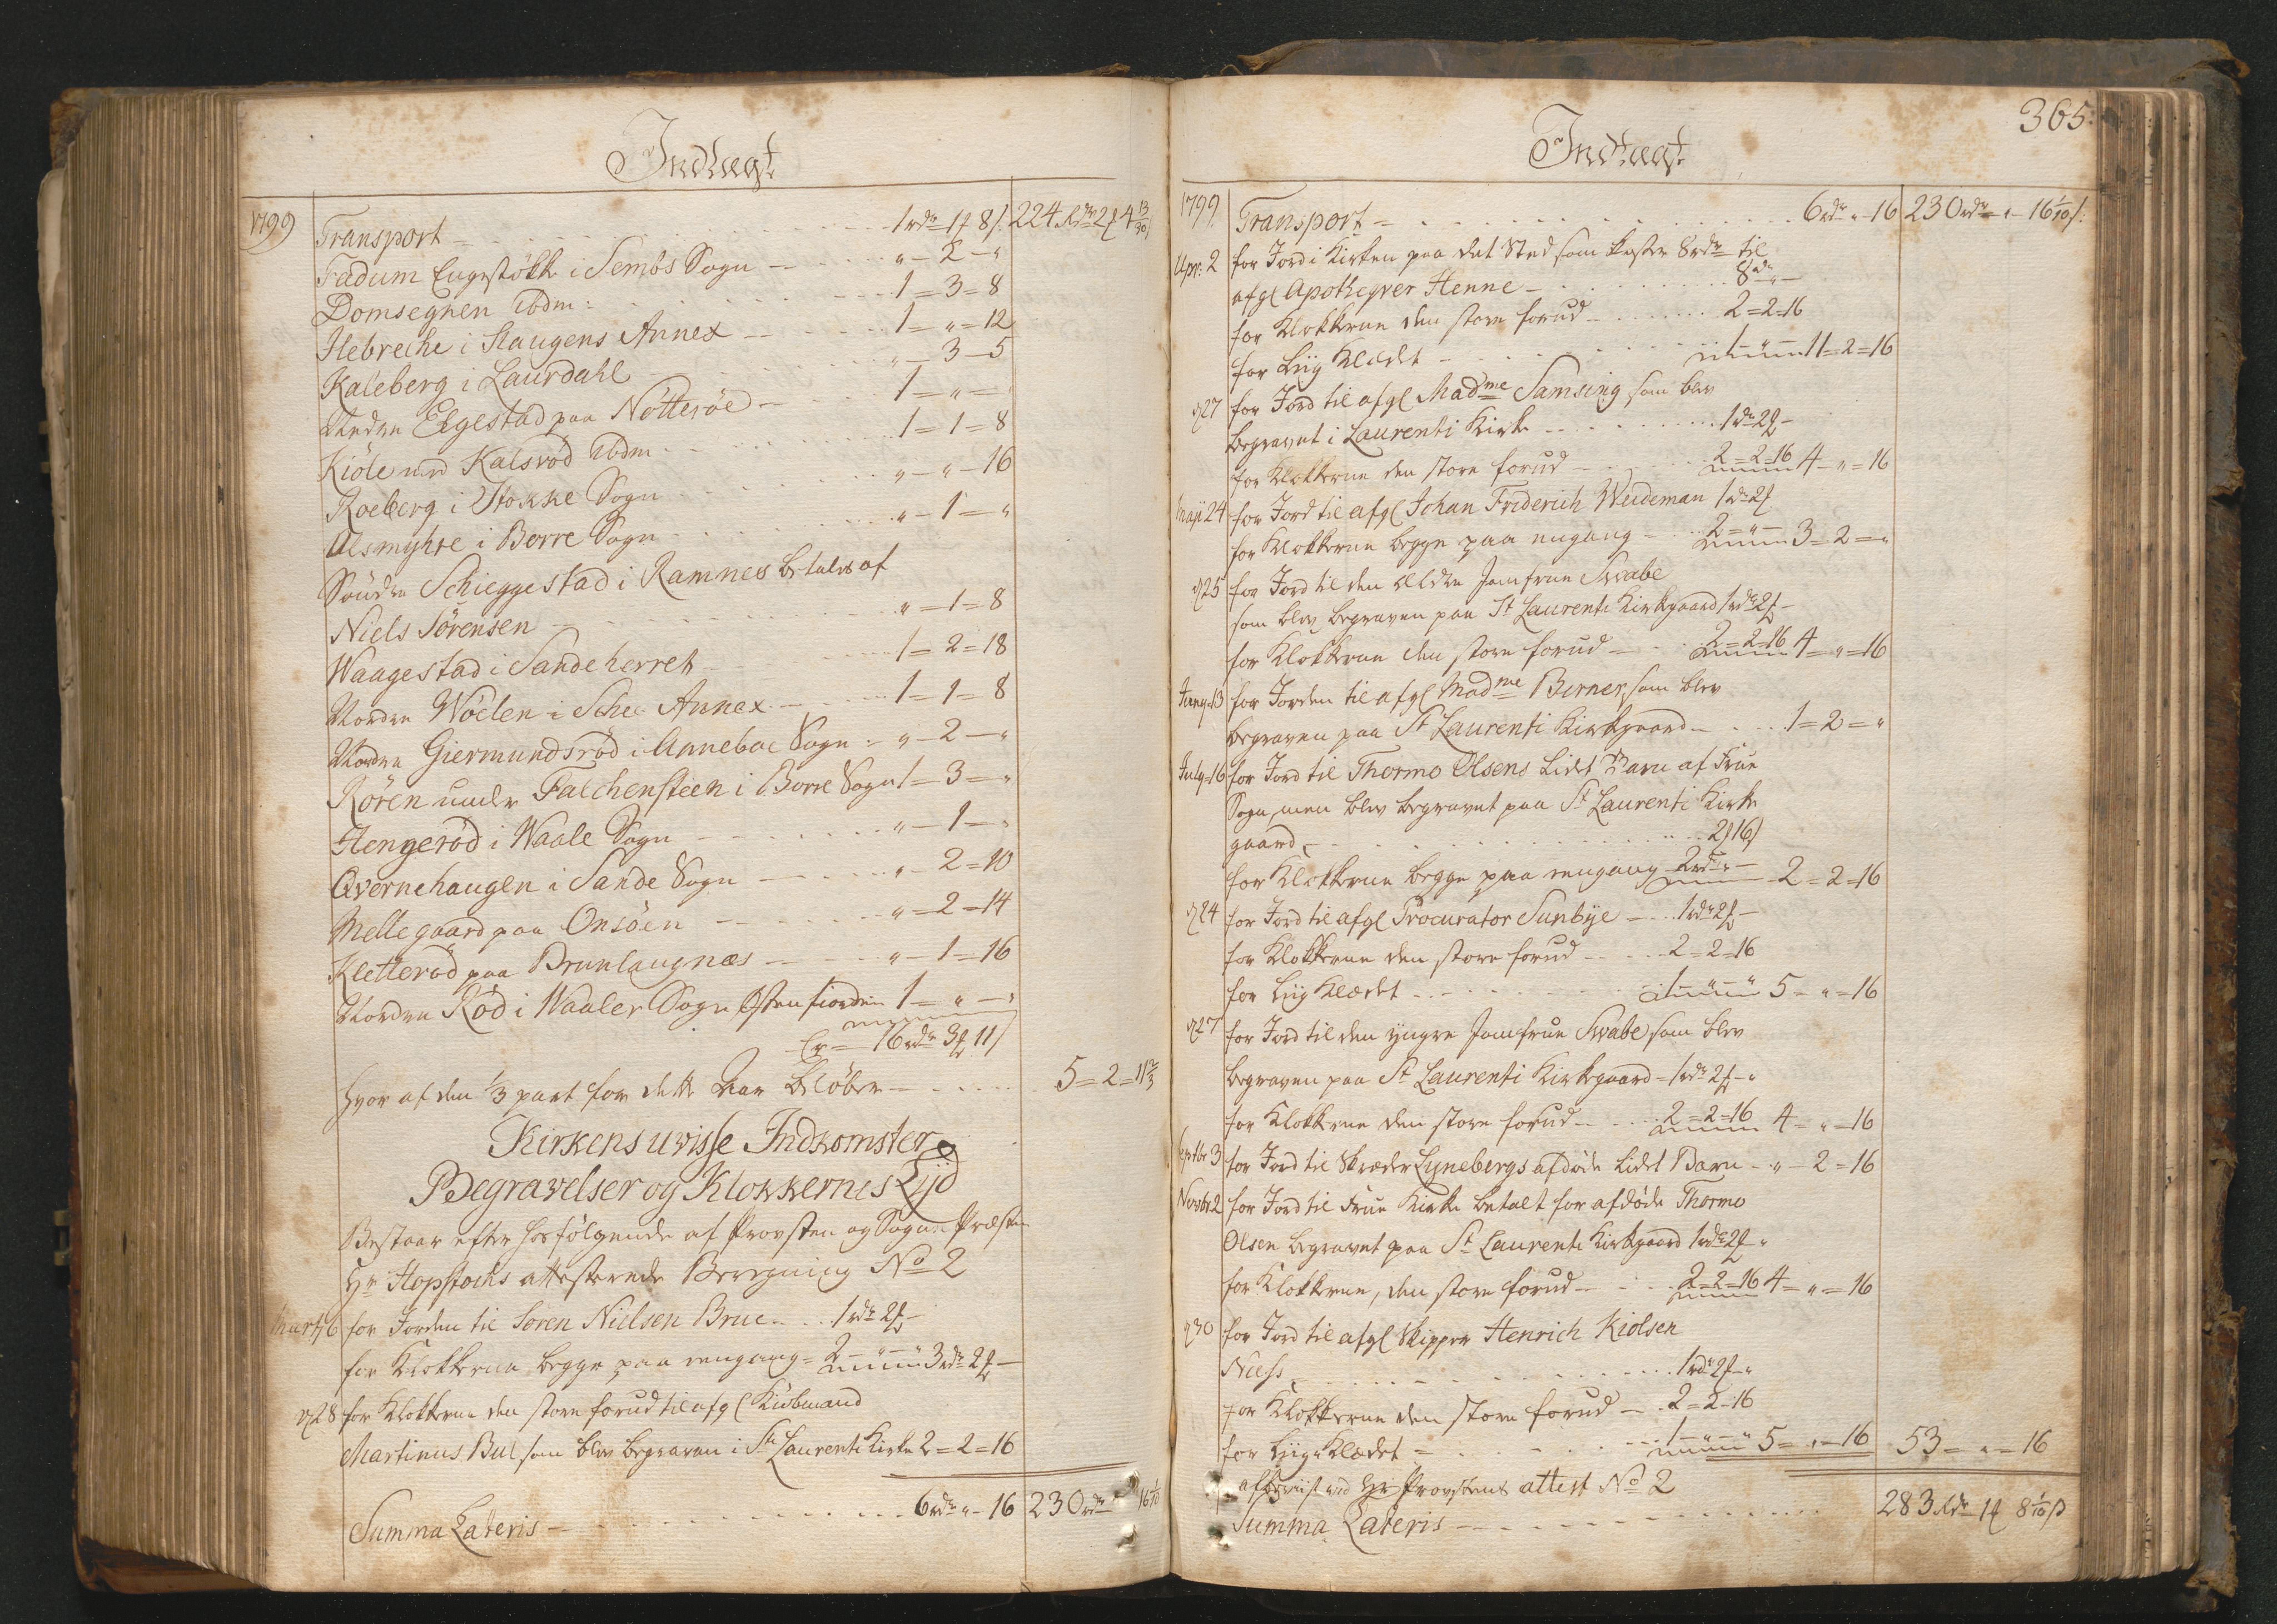 Indtægt
1799 Transport 1 rdr 1 ℔ 8 s. 224 Rdr 2 ℔ 4 13/30 s
Fadum Engestökke i Sembs Sogn „ - 2 - „
Domsegnen ibdm: 1 = 3 = 8
Hebreche i Slaugens Annex 1 = „ = 12
Kaleberg i Laurdahl „ - 3 - 5
Nedre Elgestad paa Nötteröe 1 = „ =
Kiöle und Kalsröd ibdm 1 = 1 = 8
Roeberg i Stokke Sogn „ - „ - 16
Alsmyhre i Borre Sogn „ - 1 - „
Söndre Schieggestad i Ramnes betales af
Niels Sörensen „ = 1 = 8
Waagestad i Sandeherret 1 = 2 = 18
Nordre Wöelen i Schee Annex 1 = 1 = 8
Nordre Giermundsröd i Anneboe Sogn „ - 2 - „
Rören under Falchensteen i Borre Sogn 1 = 3 = „
Hengeröd i Waale Sogn „ - 1 - „
Qvernehaugen i Sande Sogn „ - 2 = 10
Mellegaard paa Onsöen „ = 2 = 14
Kletteröd paa Brunlaugnæs „ - 1 = 16
Nordre Röd i Waaler Sogn Østenfiorden 1 = „ - „
Er = 16 rdr 3 ℔ 11 s
hvor af den 1/3 part for dette Aar beløber 5 = 2 = 11 2/3
Kirkens uvisse Indkomster
Begravelser og Klokkernes Lÿd
Bestaar efter hosfölgende af Provsten og Sogne Præsten
Hr Hopstocks attesterede Beregning No 2
Marti 6 for Jorden til Soren Nielsen Brue 1 rdr 2 ℔ -
for Klokkerne begge paa eengang = 2 - „ - „ 3 rdr 2 ℔ -
d 28 for Klokkerne den store forud til afgl Kiöbmand
Martinus Bul som blev begraven i St Laurenti Kirke 2 = 2 = 16
Summa Lateris 6 rdr „ - 16 230 rdr „ 16 1/10
365.
Indtægt
1799 Transport 6 rdr „ - 16 230 rdr - „ - 16 1/10 s.
Apr: 2 for Jord i Kirken paa det Sted som koster 8 rdr til
afgl Apotheqver Henne 8 rdr „ -
for Klokkerne den store forud 2 = 2 = 16
for Liig Klædet 1 - „ - 11 = 2 = 16
d 27 for Jord til afgl Madme Samsing som blev
begravet i Laurenti Kirke 1 dr 2 ℔ -
for Klokkerne den store forud 2 = 2 = 16 4 - „ = 16
Maji 24 for Jord til afgl Johan Friderich Weideman 1 rdr 2 ℔
for Klokkerne begge paa eengang 2 = „ - 3 = 2 = „
d 25 for Jord til den ældre Jomfrue Swabe
som blev begraven paa St Laurenti Kirkgaard 1 rdr 2 ℔ -
for Klokkerne den store forud 2 = 2 = 16 4 = „ = 16
Juny 13 for Jorden til afgl Madme Berner, som blev
begraven paa St Laurenti Kirkgaard 1 = 2 = „
July 16 for Jord til Thormo Olsens Lidet Barn af Frue
Sogn, men blev begravet paa St Laurenti Kirke
gaard 2 ℔ 16 s
for Klokkerne begge paa eengang 2 rdr „ - 2 = 2 = 16
d 24 for Jord til afgl Procurator Sunbÿe 1 rdr 2 ℔ -
for Klokkerne den store forud 2 = 2 = 16
for Liig Klædet 1 - „ - „ 5 = „ = 16
d 27 for Jord til den yngre Jomfrue Swabe, som blev
begraven paa St Laurenti Kirkegaard = 1 rdr 2 ℔ - „
for Klokkerne den store forud 2 = 2 = 16 4 = „ = 16
Septbr 3 for Jord til Skræder Lynebergs afdöde Lidet Barn „ - 2 = 16
Novbr 2 for Jord til Frue Kirke betalt for afdöde Thormo
Olsen begravet paa St Laurenti Kirkgaard 1 rdr 2 ℔ - „
for Klokkerne, den store forud 2 = 2 = 16 4 = „ = 16
d 30 for Jord til afgl Skipper Henrich Kiölsen
Næss 1 rdr 2 ℔ - „
for Klokkerne den store forud 2 = 2 = 16
for Liig Klædet 1 - „ - „ 5 = „ = 16 53 = „ = 16
afbeviist ved Hr Provstens attest No 2
Summa Lateris 283 Rdr 1 ℔ 8 1/10 s